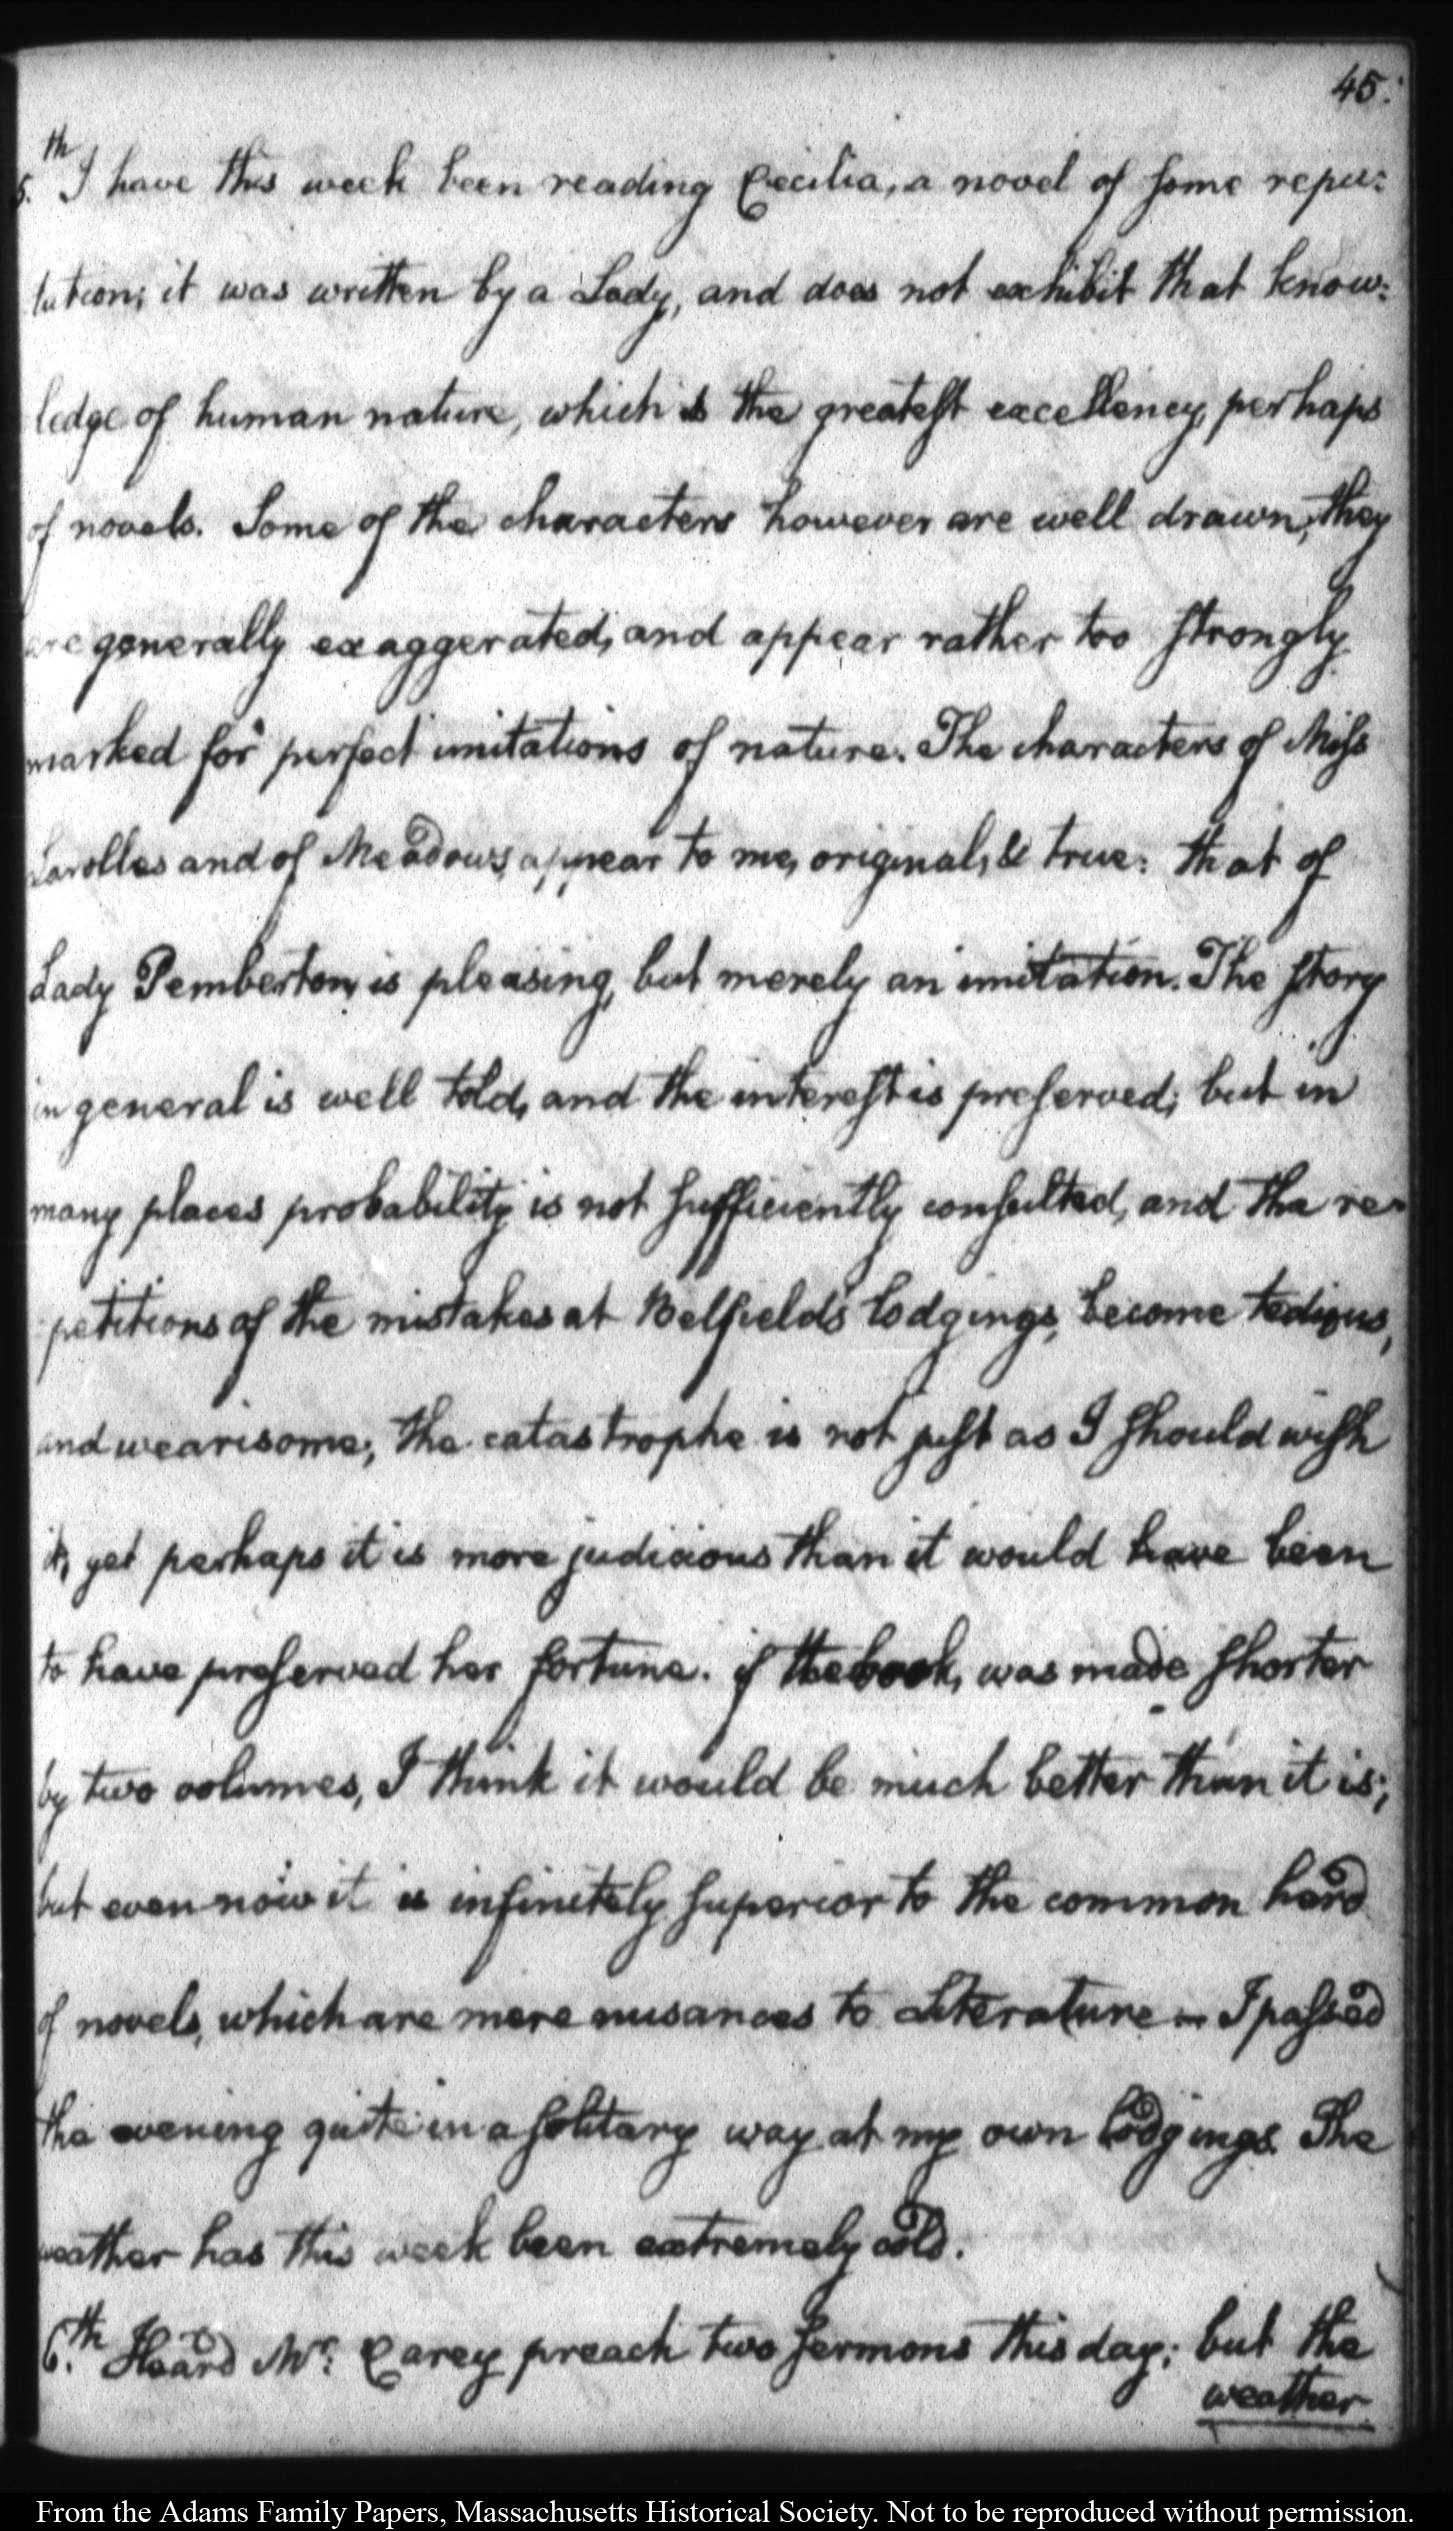 45.
5.th I have this week been reading Cecilia, a novel of some repu:
tation; it was written by a Lady, and does not exhibit that know:
ledge of human nature, which is the greatest excellency, perhaps
of novels. Some of the characters however are well drawn; they
are generally exaggerated, and appear rather too strongly
marked for perfect imitations of nature. The characters of Miss
Larolles and of Meadows, appear to me, original, & true: that of
Lady Pemberton, is pleasing, but merely an imitation. The story
in general is well told, and the interest is preserved; but in
many places probability is not sufficiently consulted, and the re-
petitions of the mistakes at Belfield's lodgings, become tedious,
and wearisome; the catastrophe is not just as I should wish
it, yet perhaps it is more judicious than it would have been
to have preserved her fortune. if the book, was made shorter
by two volumes, I think it would be much better than it is;
but even now it is infinitely superior to the common herd
of novels, which are mere nusances to Literature — I passed
the evening quite in a solitary way at my own lodgings. The
weather has this week been extremely cold.
6.th Heard Mr: Carey preach two sermons this day; but the
weather
From the Adams Family Papers, Massachusetts Historical Society. Not to be reproduced without permission.